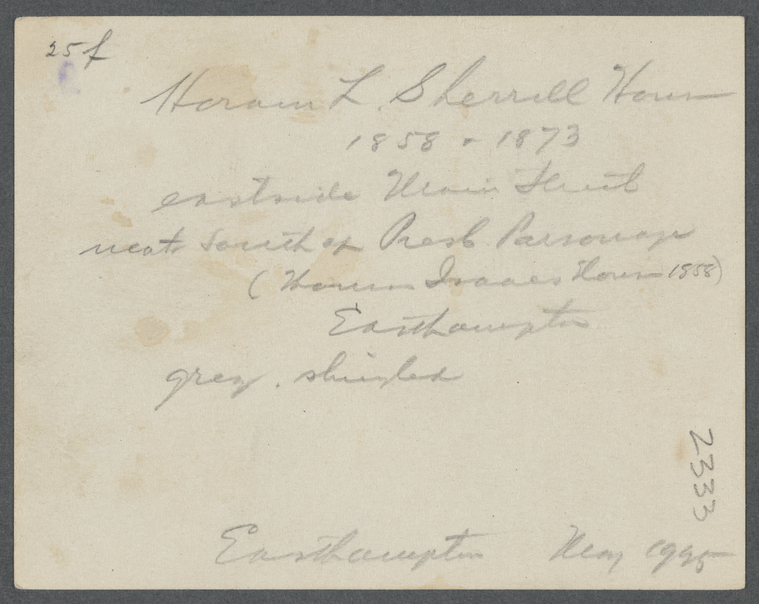 25f
Hiram L. Sherrill House
1858 - 1873
eastside Main Street
next South of Presb. Parsonage
( Isaacs House 1858)
Easthampton
grey. shingled
2333
Easthampton May